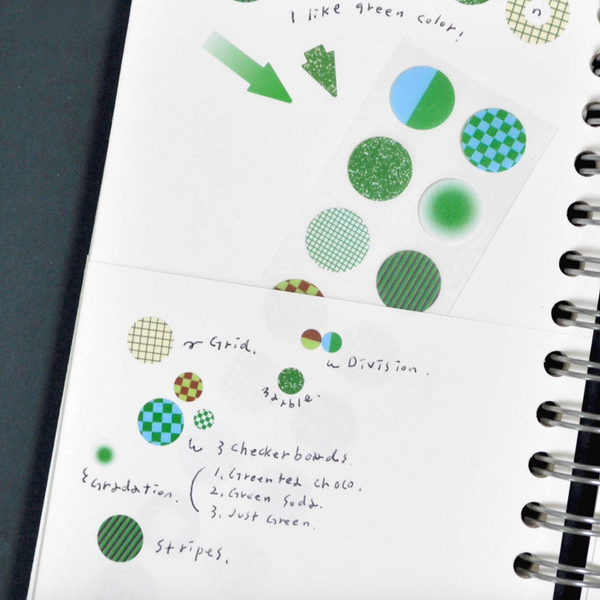 I like green color!
n
Grid.
Division.
Marble.
3 checkerboards.
1. Greentea choco.
2. Green Soda.
3. Just Green.
Gradation.
Stripes.